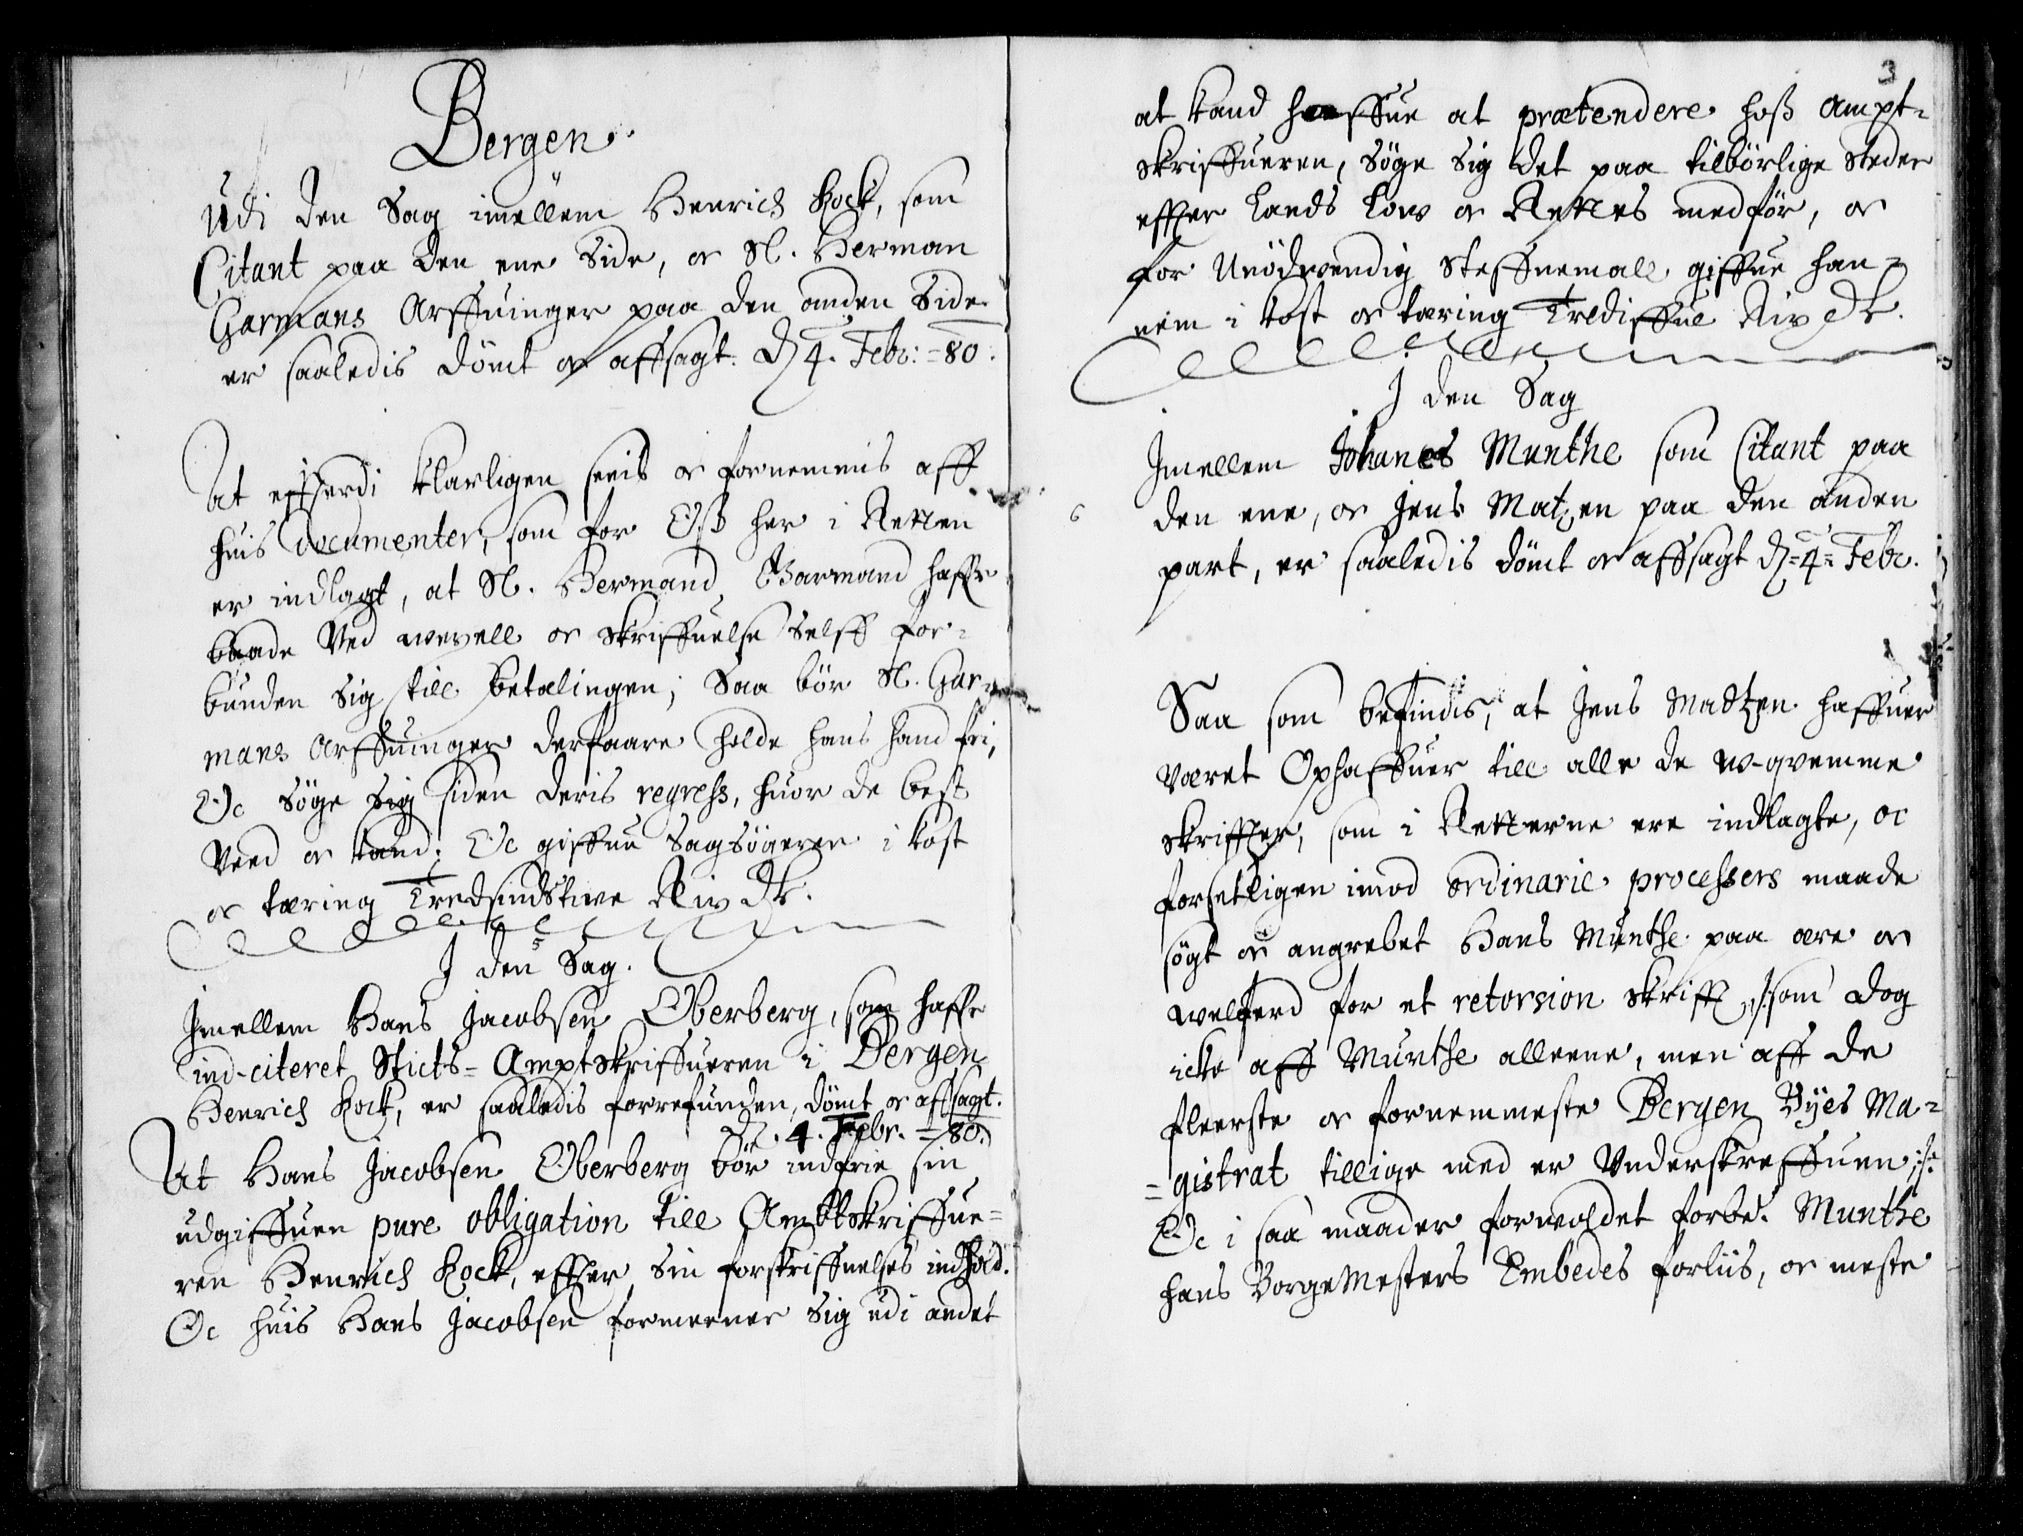 Bergen.
Udi den Sag imellem Henrich Kock, som
Citant paa den ene Side, oc Sl. Herman
Garmans Arffuinger paa den anden Side
er saaledis dömt oc affsagt. D 4. Febr: -80.
At efftterdi klarligen seeis oc fornemmis aff
huis documenter, som for Oss her i Retten
er indlagt, at Sl. Hermand Garmand haffr
baade Ved wexell oc skriffuelse selff for-
bunden sig till betalingen; Saa bör Sl. Gar-
mans Arffuinger derfaare holde hans hand fri,
Oc söge sig siden deris regress, huor de best
Veed oc kand; Oc giffue Sagsögeren i kost
oc tæring Tredsindstiwe Rix Dr.
5
I den Sag.
Imellem Hans Jacobsen Oberberg, som haffr
ind-citeret Sticts-Amptskriffueren i Bergen
Henrich Kock, er saaledis forrefunden, dömt oc affsagt.
D. 4. Febr. -80.
At Hans Jacobsen Oberberg bör indfrie sin
udgiffuen pure obligation till Ambtskriffue-
ren Henrich Kock, effter sin forskriffuelses indhold.
Oc huis Hans Jacobsen formeener sig udi andet
3
at kand haffue at prætendere hoss Ampt-
skriffueren, söge sig det paa tilbörlige steder
effter Lands Low oc Rettes medför, oc
for Unödwendig steffnemall giffue han-
nem i kost oc tæring Trediffue Rix Dr.
I den Sag
Imellem Johanes Munthe som Citant paa
6
den ene, oc Jens Matzen paa den anden
part, er saaledis dömt oc affsagt D=4= Febr.
Saa som befindis, at Jens Madtzen haffuer
været Ophaffuer till alle de w-qvemme
skriffter, som i Retterne ere indlagte, oc
forsetligen imod ordinarie processers maade
sögt oc angrebet Hans Munthe paa ære oc
welferd for et retorsion skrifft ./: som dog
icke aff Munthe alleene, men aff de
fleerste oc fornemmeste Bergen Byes Ma-
=gistrat tillige med er Underskreffuen :/.
Oc i saa maader forwoldet forbd. Munthe
hans BorgeMesters Embedes forliis, oc meste